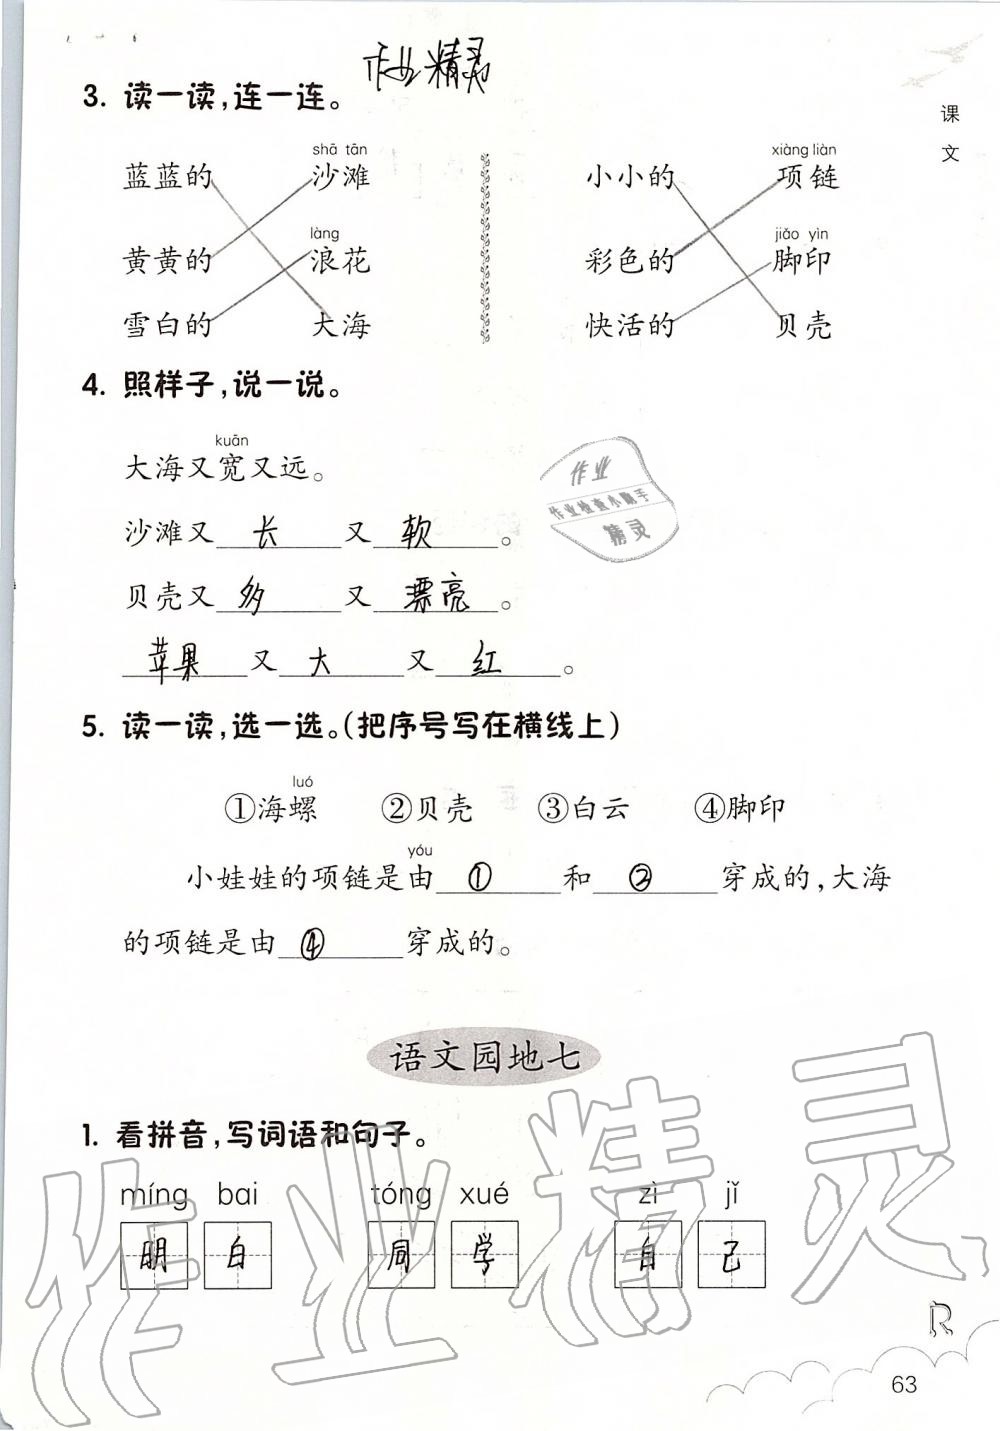 作业精灵
3. 读一读,连一连。
课文
shā tān
xiàng liàn
蓝蓝的 沙滩 小小的 项链
làng
jiǎo yìn
黄黄的 浪花 彩色的 脚印
雪白的 大海 快活的 贝壳
4. 照样子,说一说。
kuān
大海又宽又远。
作业
作业检查小帮手
精灵
沙滩又 长 又 软 。
贝壳又 多 又 漂亮 。
苹果 又 大 又 红 。
5. 读一读,选一选。(把序号写在横线上)
luó
①海螺 ②贝壳 ③白云 ④脚印
yóu
小娃娃的项链是由 ① 和 ② 穿成的,大海
的项链是由 ④ 穿成的。
语文园地七
1. 看拼音,写词语和句子。
míng bai tóng xué zì jǐ
明 白 同 学 自 己
作业精灵
R
63